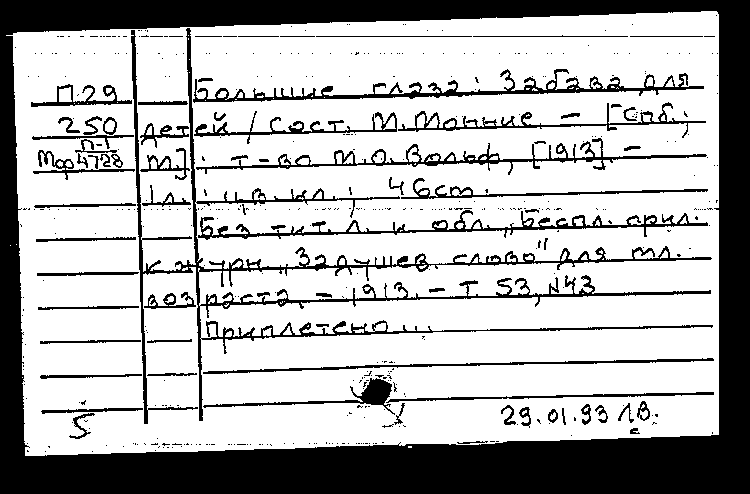 П29 Большие глаза: Забава для
250 детей / Сост. М. Монние. – [Спб.;
П-1
Мор 4728 М]: т-во М.О. Вольф, [1913]. –
1 л.: цв. ил.; 46 cm.
Без тит. л. и обл. „Беспл. прил.
к журн „Задушев. слово" для мл.
возраста. – 1913. – Т. 53, №43
Приплетено...
5 29.01.93